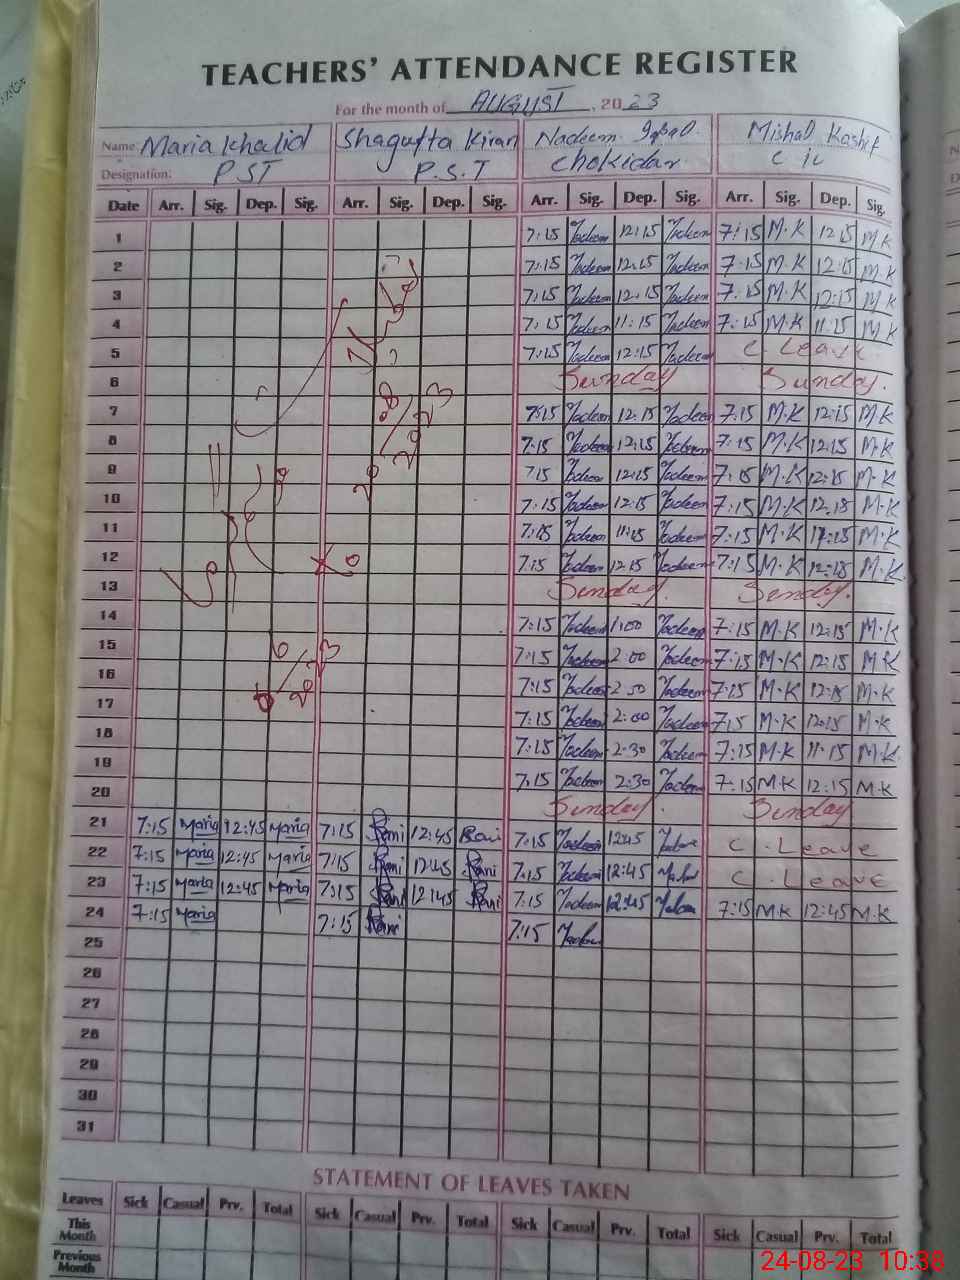 TEACHERS' ATTENDANCE REGISTER
For the month of AUGUST, 2023
Name: Maria Khalid Shagufta Kiran Nadeem Iqbal. Mishal Kashif
Designation: PST P.S.T Chokidar
Date Arr. Sig. Dep. Sig. Arr. Sig. Dep. Sig. Arr. Sig. Dep. Sig. Arr. Sig. Dep. Sig.
1 7:15 Nadeem 12:15 Nadeem 7:15 M.K 12:15 M.K
2 7:15 Nadeem 12:15 Nadeem 7:15 M.K 12:15 M.K
3 7:15 Nadeem 12:15 Nadeem 7:15 M.K 12:15 M.K
4 7:15 Nadeem 11:15 Nadeem 7:15 M.K 11:15 M.K
5 7:15 Nadeem 12:15 Nadeem C. Leave
6 Sunday Sunday.
7 7:15 Nadeem 12:15 Nadeem 7:15 M.K 12:15 M.K
8 7:15 Nadeem 12:15 Nadeem 7:15 M.K 12:15 M.K
9 7:15 Nadeem 12:15 Nadeem 7:15 M.K 12:15 M.K
10 7:15 Nadeem 12:15 Nadeem 7:15 M.K 12:15 M.K
11 7:15 Nadeem 11:15 Nadeem 7:15 M.K M.K
12 7:15 Nadeem 12:15 Nadeem 7:15 M.K 12:15 M.K
13 Sunday. Sunday.
14 7:15 Nadeem 1:00 Nadeem 7:15 M.K 12:15 M.K
15 7:15 Nadeem 2:00 Nadeem 7:15 M.K 12:15 M.K
16 7:15 Nadeem Nadeem 7:15 M.K 12:15 M.K
17 7:15 Nadeem 2:00 Nadeem 7:15 M.K 12:15 M.K
18 7:15 Nadeem 2:30 Nadeem 7:15 M.K 11:15 M.K
19 7:15 Nadeem 2:30 Nadeem 7:15 M.K 12:15 M.K
20 Sunday. Sunday
21 7:15 Maria 12:45 Maria 7:15 Rani 12:45 Rani 7:15 Nadeem 12:45 Nadeem C. Leave
22 7:15 Maria 12:45 Maria 7:15 Rani 12:45 Rani 7:15 Nadeem 12:45 Nadeem C. Leave
23 7:15 Maria 12:45 Maria 7:15 Rani 12:45 Rani 7:15 Nadeem 12:45 Nadeem 7:15 M.K 12:45 M.K
24 7:15 Maria 7:15 Rani 7:15 Nadeem
25
26
27
28
29
30
31
STATEMENT OF LEAVES TAKEN
Leaves Sick Casual Prv. Total Sick Casual Prv. Total Sick Casual Prv. Total Sick Casual Prv. Total
This Month
Previous Month
24-08-23 10:38